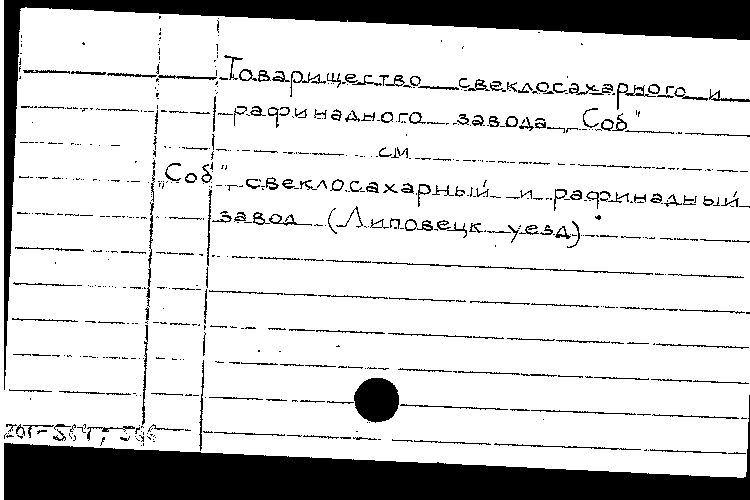 Товарищество свеклосахарного и
рафинадного завода „Соб"
см
„Соб", свеклосахарный и рафинадный
завод (Липовецк уезд)